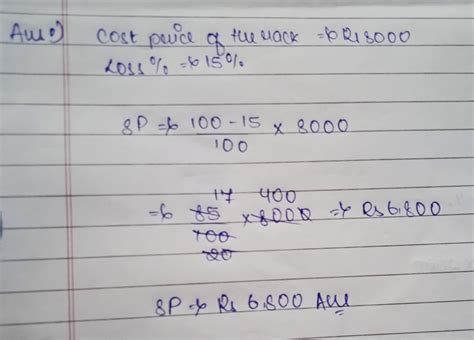 Ans:) Cost price of the rack => Rs 8000
Loss % => 15%
SP => 100 - 15 × 8000
100
17 400
=> 85 × 8000 => Rs 6,800
100
20
SP => Rs 6,800 Ans